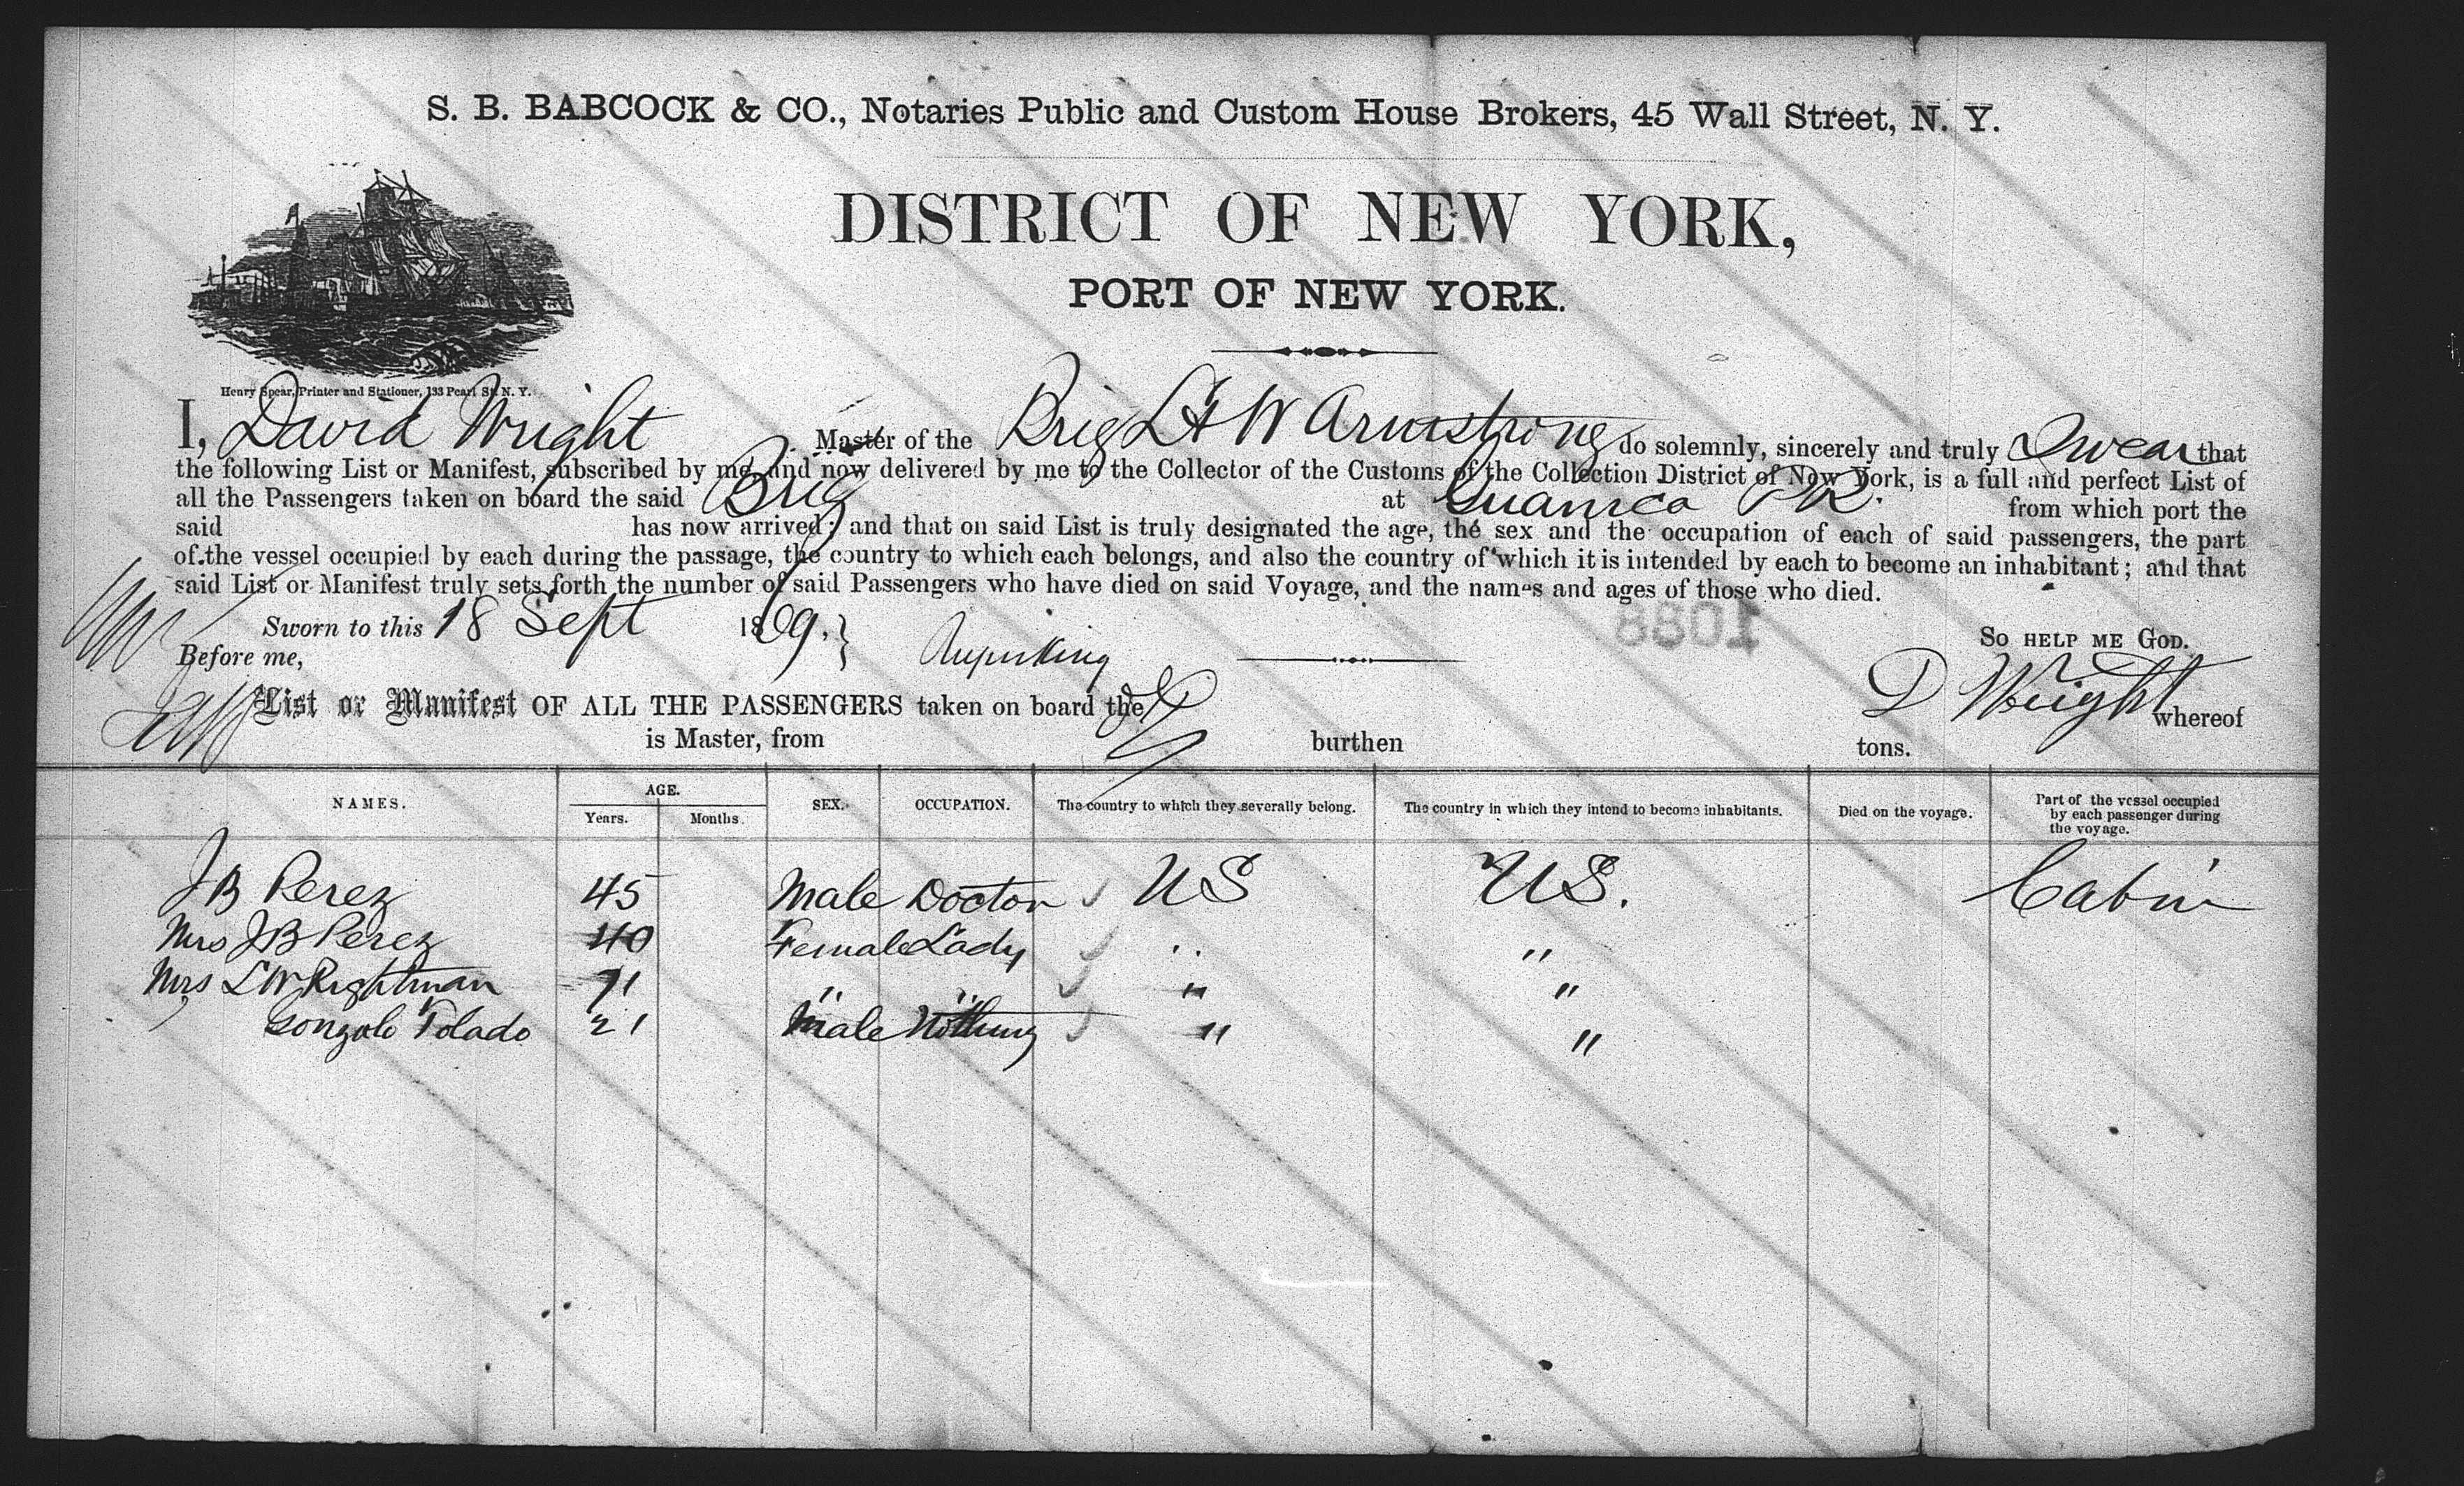 S. B. BABCOCK & CO., Notaries Public and Custom House Brokers, 45 Wall Street, N. Y.
DISTRICT OF NEW YORK,
PORT OF NEW YORK.
Henry Spear, Printer and Stationer, 133 Pearl St. N. Y.
I, David Wright Master of the Brig W Armstrong do solemnly, sincerely and truly Swear that
the following List or Manifest, subscribed by me and now delivered by me to the Collector of the Customs of the Collection District of New York, is a full and perfect List of
all the Passengers taken on board the said Brig at Guanica P R. from which port the
said has now arrived; and that on said List is truly designated the age, the sex and the occupation of each of said passengers, the part
of the vessel occupied by each during the passage, the country to which each belongs, and also the country of which it is intended by each to become an inhabitant; and that
said List or Manifest truly sets forth the number of said Passengers who have died on said Voyage, and the names and ages of those who died.
1088
Sworn to this 18 Sept 1869. So HELP ME GOD.
Before me,
D Wright
List or Manifest OF ALL THE PASSENGERS taken on board the whereof
is Master, from burthen tons.
NAMES. AGE. Years. Months. SEX. OCCUPATION. The country to which they severally belong. The country in which they intend to become inhabitants. Died on the voyage. Part of the vessel occupied by each passenger during the voyage.
J B Perez 45 Male Doctor US US. Cabin
Mrs J B Perez 40 Female Lady " "
Mrs L W Rightman 71 " " " "
Gonzalo Tolado 21 Male Nothing " "